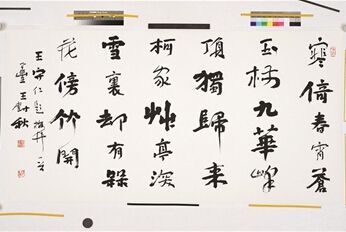 寒倚春宵蒼
玉杖九華峰
頂獨歸来
柯家艸亭深
雪裏却有槑
花傍竹開
王守仁題梅
王秋